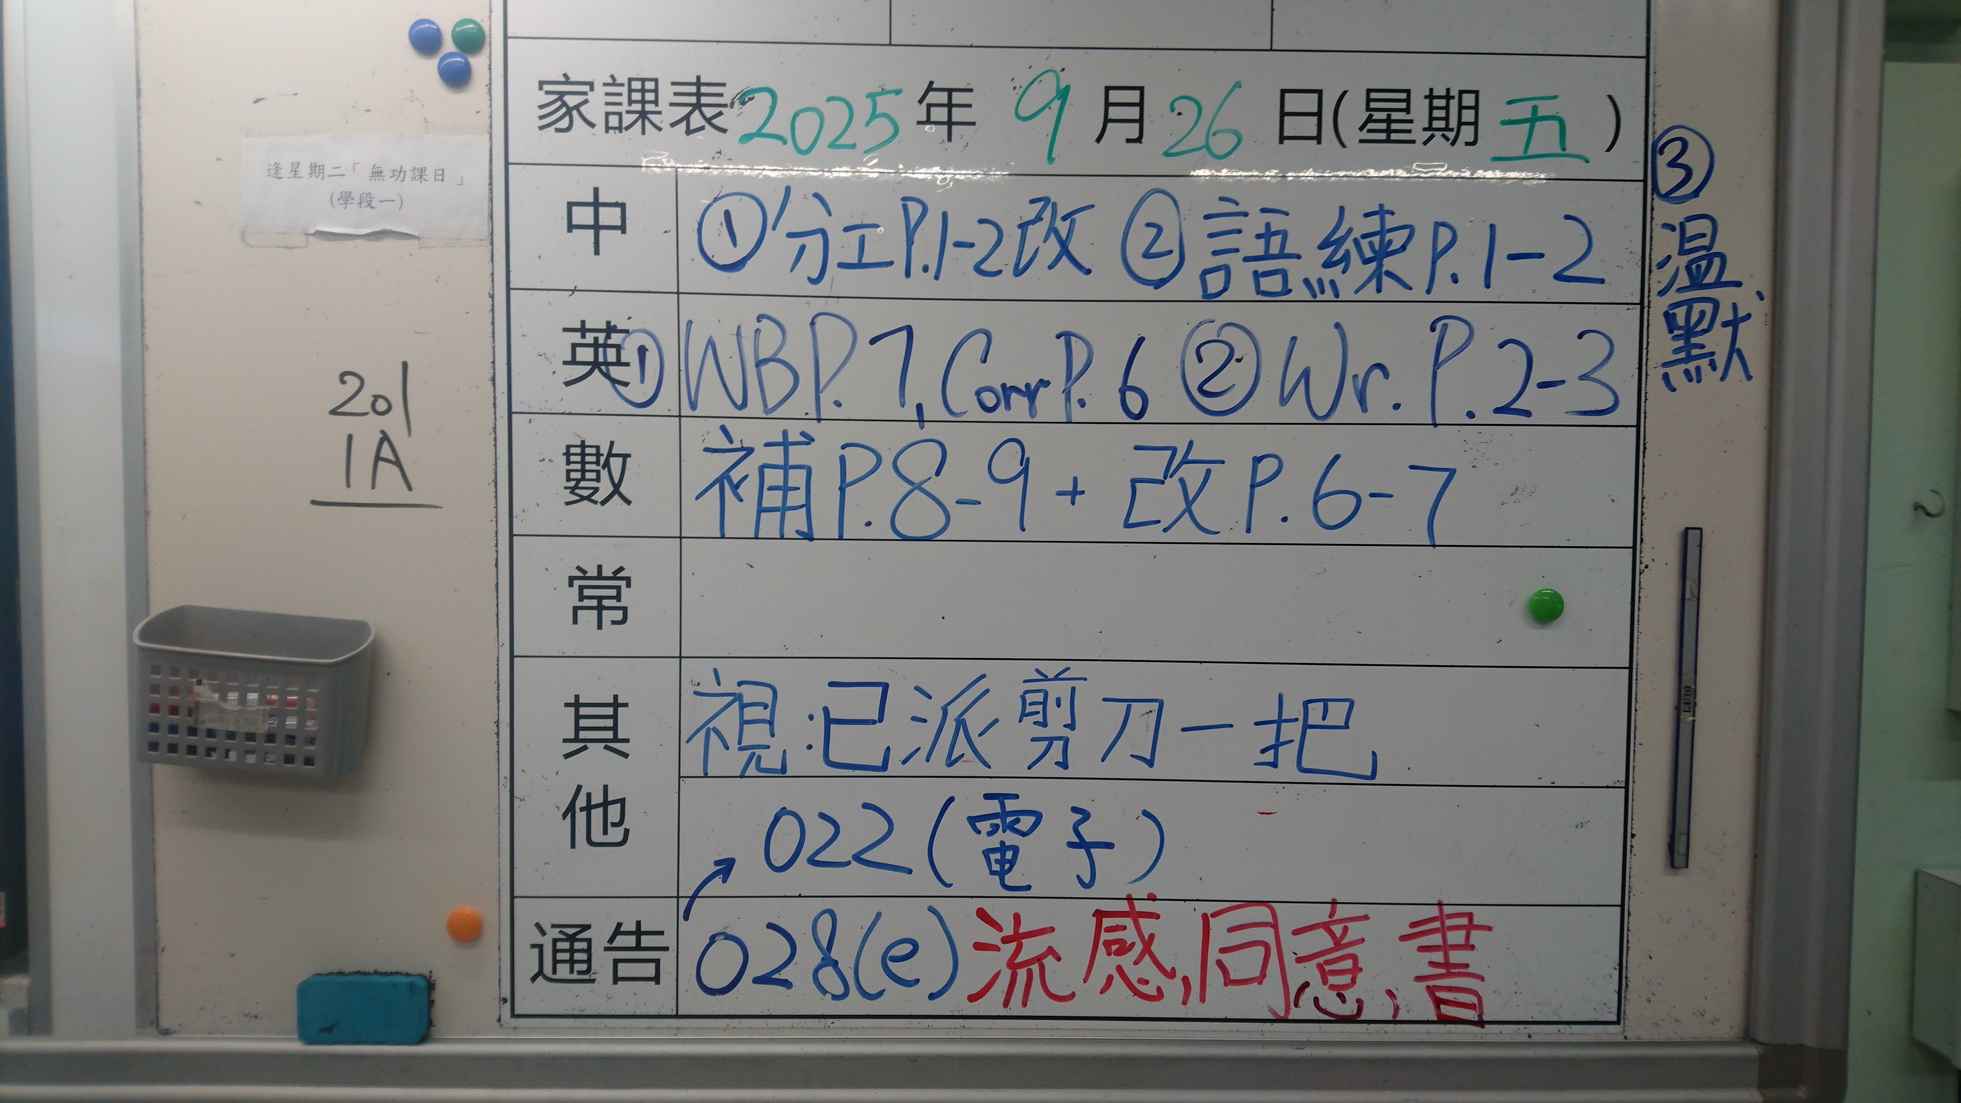 家課表 2025 年 9 月 26 日(星期 五 )
逢星期二「無功課日」
(學段一)
201
1A
中 ①分工P.1-2改 ②語練P.1-2
③溫默
英 ①WBP.7, Corr P.6 ②Wr. P.2-3
數 補P.8-9 + 改P.6-7
常
其他 視:已派剪刀一把
022(電子)
通告 028(e)流感,同意書